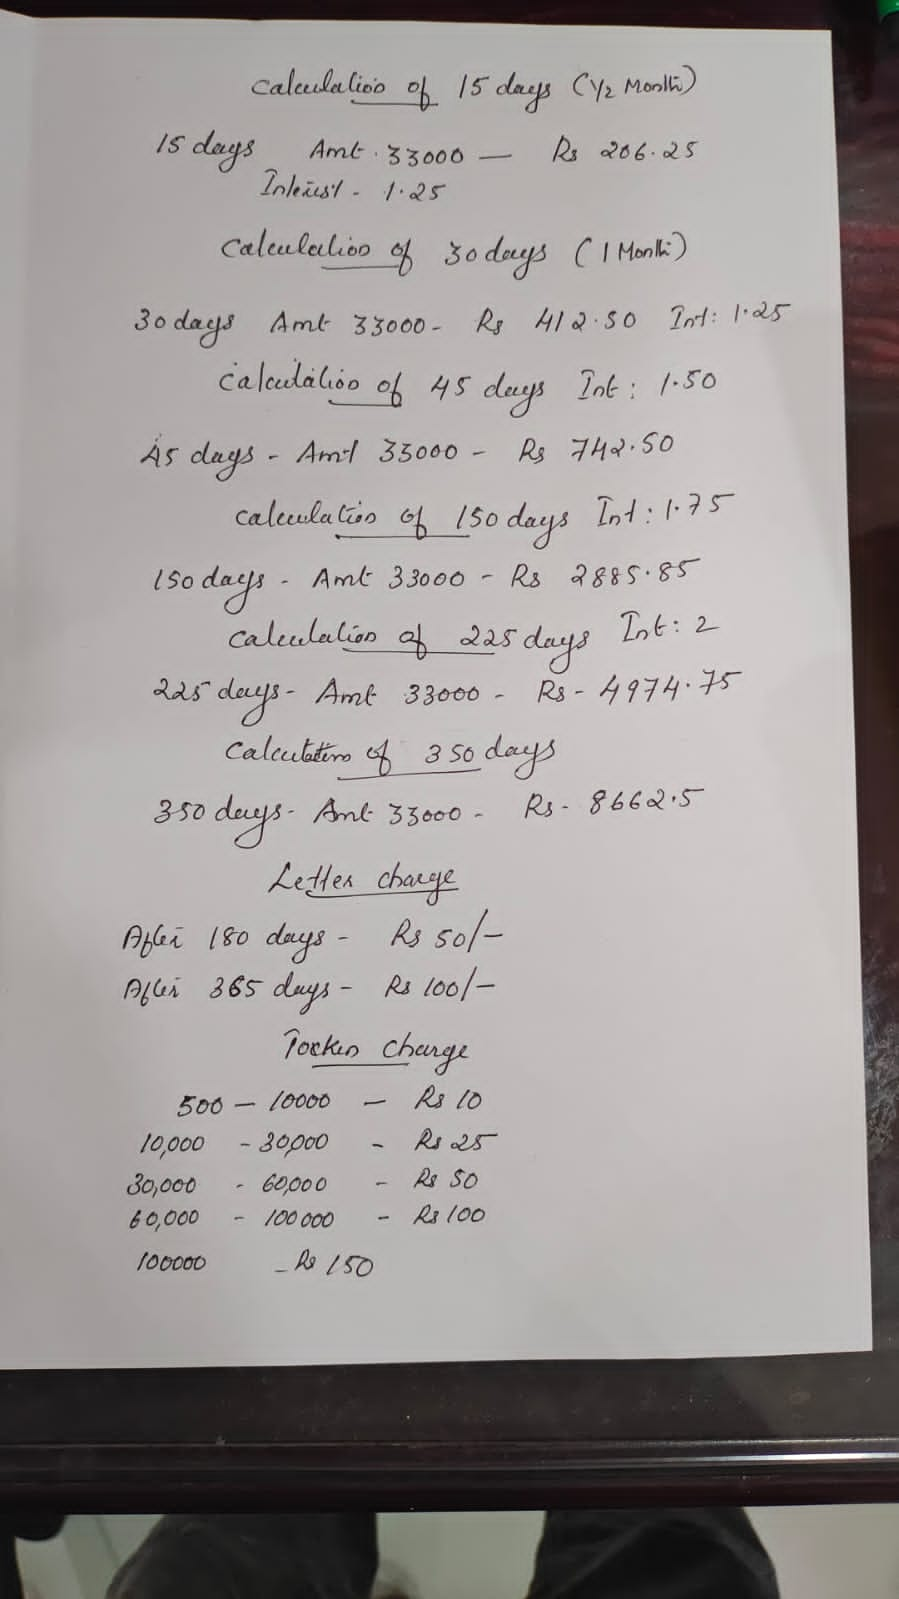 Calculation of 15 days (1/2 Month)
15 days Amt. 33000 — Rs 206.25
Interest - 1.25
Calculation of 30 days (1 Month)
30 days Amt 33000 - Rs 412.50 Int: 1.25
Calculation of 45 days Int: 1.50
45 days - Amt 33000 - Rs 742.50
Calculation of 150 days Int: 1.75
150 days - Amt 33000 - Rs 2885.85
Calculation of 225 days Int: 2
225 days - Amt 33000 - Rs - 4974.75
Calculation of 350 days
350 days - Amt 33000 - Rs - 8662.5
Letter charge
After 180 days - Rs 50/-
After 365 days - Rs 100/-
Tocken Charge
500 — 10000 — Rs 10
10,000 - 30,000 - Rs 25
30,000 - 60,000 - Rs 50
60,000 - 100000 - Rs 100
100000 - Rs 150